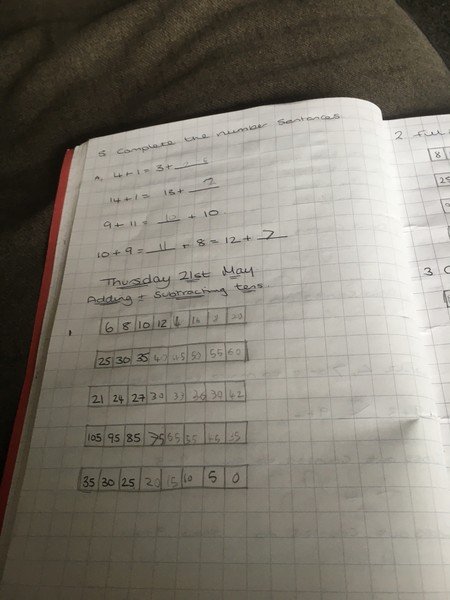 5 Complete the number sentences
A, 4+1 = 3+
14+1 = 13+ 2
9+11 = 10 + 10
10+9 = 11 + 8 = 12 + 7
Thursday 21st May
Adding & Subtracting tens.
1
6 8 10 12
25 30 35 40 45 50 55 60
21 24 27 30 33 36 39 42
105 95 85 75 65 55 45 35
35 30 25 20 15 10 5 0
2 fill
8
25
3